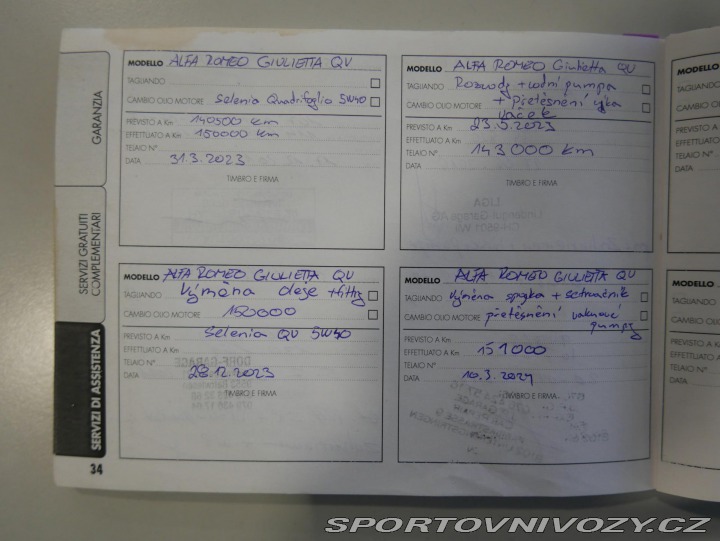 GARANZIA
SERVIZI GRATUITI
COMPLEMENTARI
SERVIZI DI ASSISTENZA
34
MODELLO ALFA ROMEO GIULIETTA QV
TAGLIANDO
CAMBIO OLIO MOTORE Selenia Quadrifoglio 5W40
PREVISTO A Km 140500 km
EFFETTUATO A Km 150000 km
TELAIO N°
DATA 31.3.2023
TIMBRO E FIRMA
MODELLO ALFA ROMEO Giulietta QV
TAGLIANDO Rozvody + vodní pumpa
CAMBIO OLIO MOTORE + přetěsnění víka
vaček
PREVISTO A Km 23.5.2023
EFFETTUATO A Km
TELAIO N° 143000 km
DATA
TIMBRO E FIRMA
MODELLO ALFA ROMEO GIULIETTA QV
TAGLIANDO Výměna oleje + filtry
CAMBIO OLIO MOTORE 150000
PREVISTO A Km Selenia QV 5W40
EFFETTUATO A Km
TELAIO N°
DATA 28.12.2023
TIMBRO E FIRMA
MODELLO ALFA ROMEO GIULIETTA QV
TAGLIANDO Výměna spojka + setrvačník
CAMBIO OLIO MOTORE přetěsnění vakuové
pumpy
PREVISTO A Km
EFFETTUATO A Km 151000
TELAIO N°
DATA 10.3.2024
TIMBRO E FIRMA
MODELLO
TAGLIANDO
CAMBIO OLIO
PREVISTO A Km
EFFETTUATO A
TELAIO N°
DATA
MODELLO
TAGLIANDO
CAMBIO OLIO
PREVISTO A
EFFETTUATO
TELAIO N°
DATA
SPORTOVNIVOZY.CZ